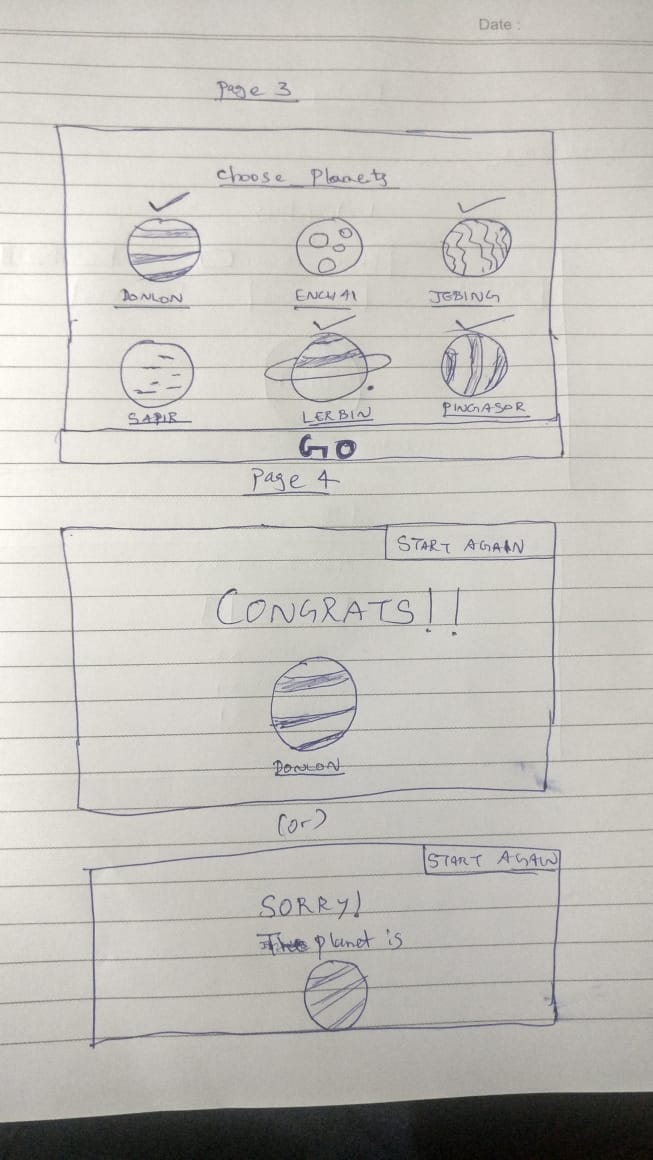 Date :
Page 3
Choose Planets
DONLON ENCHAI JEBING
SAPIR LERBIN PINGASOR
GO
Page 4
START AGAIN
CONGRATS!!
DONLON
(or)
START AGAIN
SORRY!
The planet is